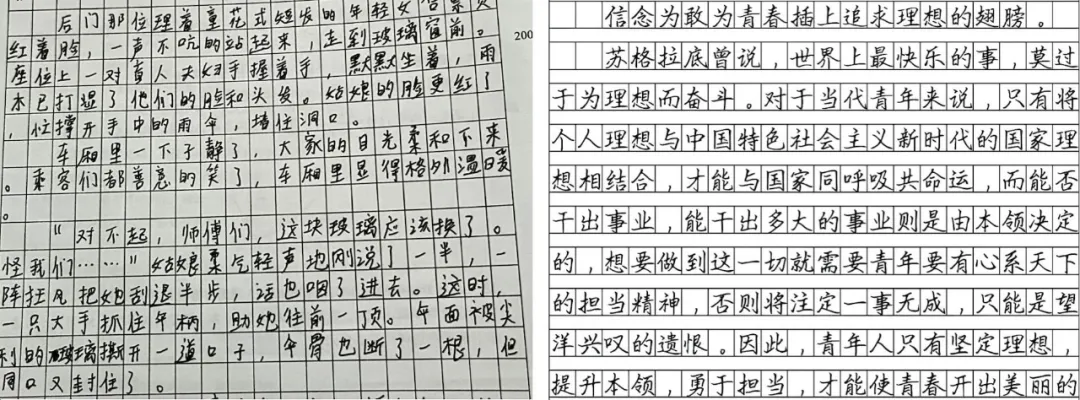 后门那位理着童花式短发的年轻女
红着脸，一声不吭的站起来，走到玻璃窗前。
座位上一对盲人夫妇手握着手，默默坐着，雨
水已打湿了他们的脸和头发。姑娘的脸更红了
，忙撑开手中的雨伞，堵住洞口。
车厢里一下子静了，大家的目光柔和下来
。乘客们都善意的笑了，车厢里显得格外温暖
。
200
“对不起，师傅们，这块玻璃应该换了。
怪我们……”姑娘柔气轻声地刚说了一半，一
阵狂风把她刮退半步，话也咽了进去。这时，
一只大手抓住伞柄，助她往前一顶。伞面被尖
利的玻璃撕开一道口子，伞骨也断了一根，但
洞口又封住了。
信念为敢为青春插上追求理想的翅膀。
苏格拉底曾说，世界上最快乐的事，莫过
于为理想而奋斗。对于当代青年来说，只有将
个人理想与中国特色社会主义新时代的国家理
想相结合，才能与国家同呼吸共命运，而能否
干出事业，能干出多大的事业则是由本领决定
的，想要做到这一切就需要青年要有心系天下
的担当精神，否则将注定一事无成，只能是望
洋兴叹的遗恨。因此，青年人只有坚定理想，
提升本领，勇于担当，才能使青春开出美丽的